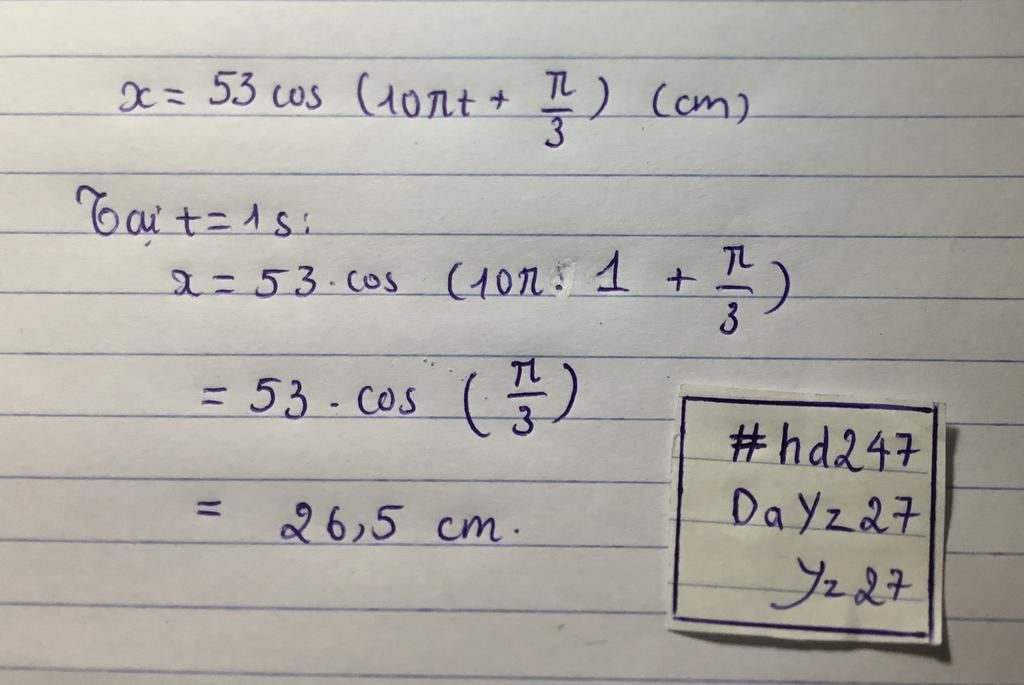 x = 53 cos (10πt + π/3) (cm)
Tại t = 1s:
x = 53 . cos (10π . 1 + π/3)
= 53 . cos (π/3)
= 26,5 cm.
#hd247
DaYz27
Yz27